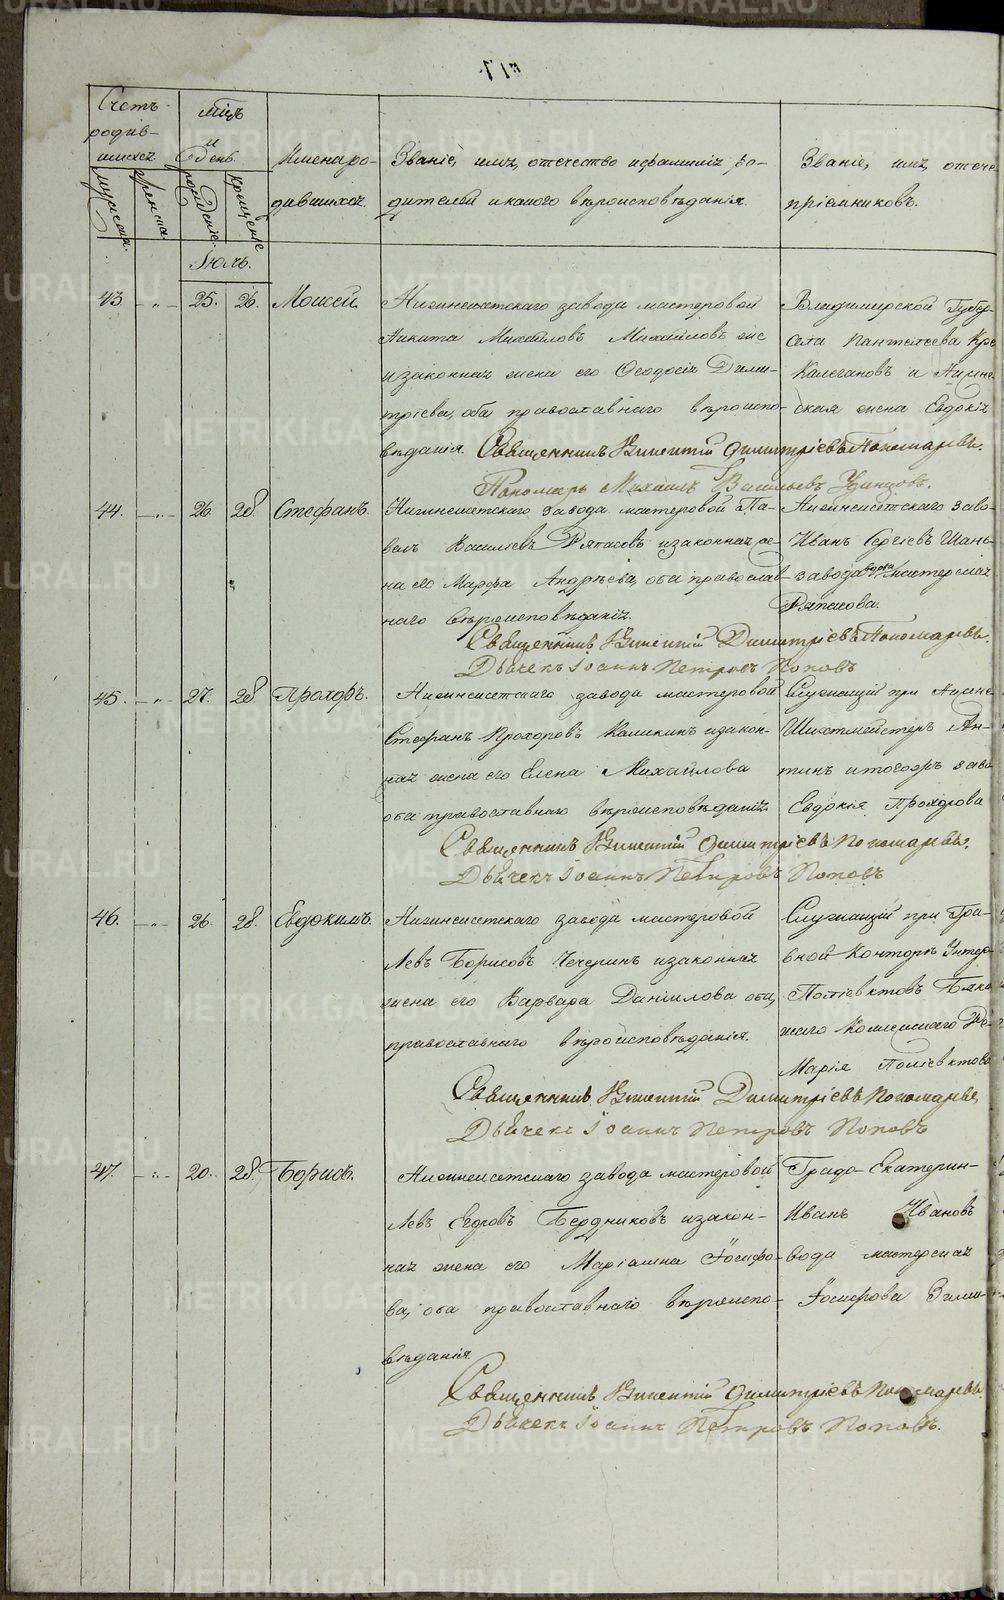 Счетъ родив-
шихся
мужска
женска
Мцъ
и
день
рожденіе
крещеніе
Имена ро-
дившихся.
Званіе, имя, отечество и фамилія ро-
дителей и какого вѣроисповѣданія.
Званіе, имя, отече
пріемниковъ.
Іюль.
43 - „ - 25. 26. Моисей.
Нижнеисетскаго завода мастеровой
Никита Михайловъ Михайловъ же
и законная жена его Ѳеодосія Дими-
тріева, оба православнаго вѣроиспо-
вѣданія. Священникъ Викентій Димитріевъ Пономаревъ.
Пономарь Михаилъ Васильевъ
Владимирской Губер-
села Пантелеева Кре
и Нижне
ская жена Евдокія
44. - „ - 26 28. Стефанъ.
Нижнеисетскаго завода мастеровой Па-
велъ Василіевъ Ряпасовъ и законная же-
на его Марфа Андрѣева, оба православ-
наго вѣроисповѣданія.
Священникъ Викентій Димитріевъ Пономаревъ.
Дьячекъ Іоаннъ Петровъ Поповъ
Нижнеисетскаго заво-
Иванъ Сергіевъ Шань-
завода мастерская
Ряпасова.
45. - „ - 27. 28 Прохоръ.
Нижнеисетскаго завода мастеровой
Стефанъ Прохоровъ Каликинъ и закон-
ная жена его Елена Михайлова
оба православнаго вѣроисповѣданія.
Священникъ Викентій Димитріевъ Пономаревъ.
Дьячекъ Іоаннъ Петровъ Поповъ
Служащій при Нижне
Шихтмейстеръ Ан-
тинъ и тогоже заво
Евдокія Прохорова
46. - „ - 26. 28. Евдокимъ.
Нижнеисетскаго завода мастеровой
Левъ Борисовъ Чечеринъ и законная
жена его Варвара Даніилова оба,
православнаго вѣроисповѣданія.
Священникъ Викентій Димитріевъ Пономаревъ,
Дьячекъ Іоаннъ Петровъ Поповъ
Служащій при Гла-
вной Конторѣ Унтер
Поліевктовъ
наго
Марія Поліевктова
47. - „ - 20. 28. Борисъ.
Нижнеисетскаго завода мастеровой
Левъ Егоровъ Бердниковъ и закон-
ная жена его Маріамна Іосифо-
ва, оба православнаго вѣроиспо-
вѣданія.
Священникъ Викентій Димитріевъ Пономаревъ
Дьячекъ Іоаннъ Петровъ Поповъ.
Града Екатерин-
Иванъ Ивановъ
вода мастерская
Іосифова